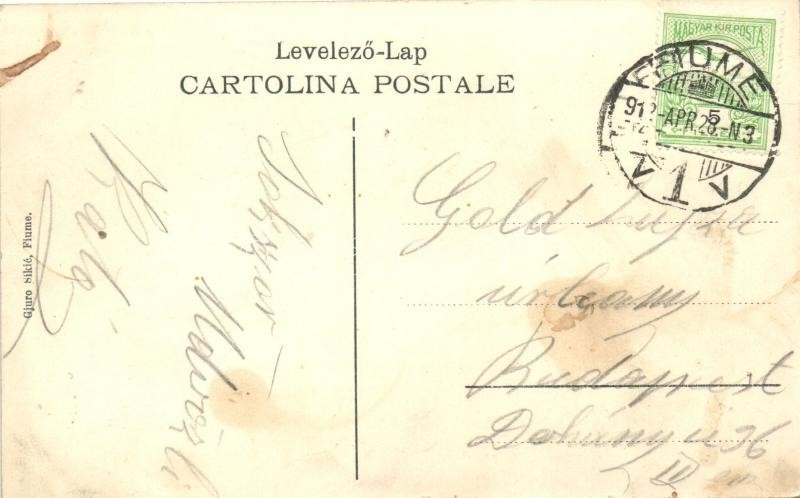 Levelező-Lap
CARTOLINA POSTALE
MAGYAR KIR. POSTA
FIUME
912 APR. 28.-N3
5
1
Gjuro Sikić, Fiume.
Sokszor
üdvözli
Kató
Gold Lujza
úrleány
Budapest
Dohány u 76